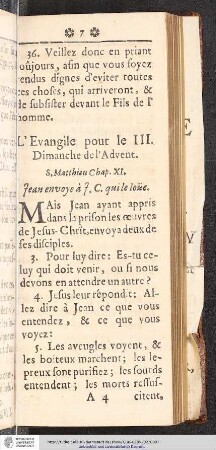 7
36. Veillez donc en priant
oûjours, afin que vous soyez
endus dignes d'eviter toutes
ces choses, qui arriveront, &
de subsister devant le Fils de l'
homme.
L'Evangile pour le III.
Dimanche de l'Advent.
S. Matthieu Chap. XI.
Jean envoye à J. C. qui le loüe.
MAis Jean ayant appris
dans la prison les œuvres
de Jesus-Christ, envoya deux de
ses disciples.
3. Pour luy dire: Es-tu ce-
luy qui doit venir, ou si nous
devons en attendre un autre?
4. Jesus leur répondit: Al-
lez dire à Jean ce que vous
entendez, & ce que vous
voyez:
5. Les aveugles voyent, &
les boiteux marchent; les le-
preux sont purifiez; les sourds
entendent; les morts ressus-
A 4 citent,